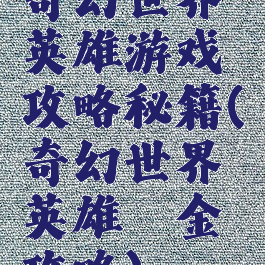 奇幻世界
英雄游戏
攻略秘籍(
奇幻世界
英雄 金
攻略)